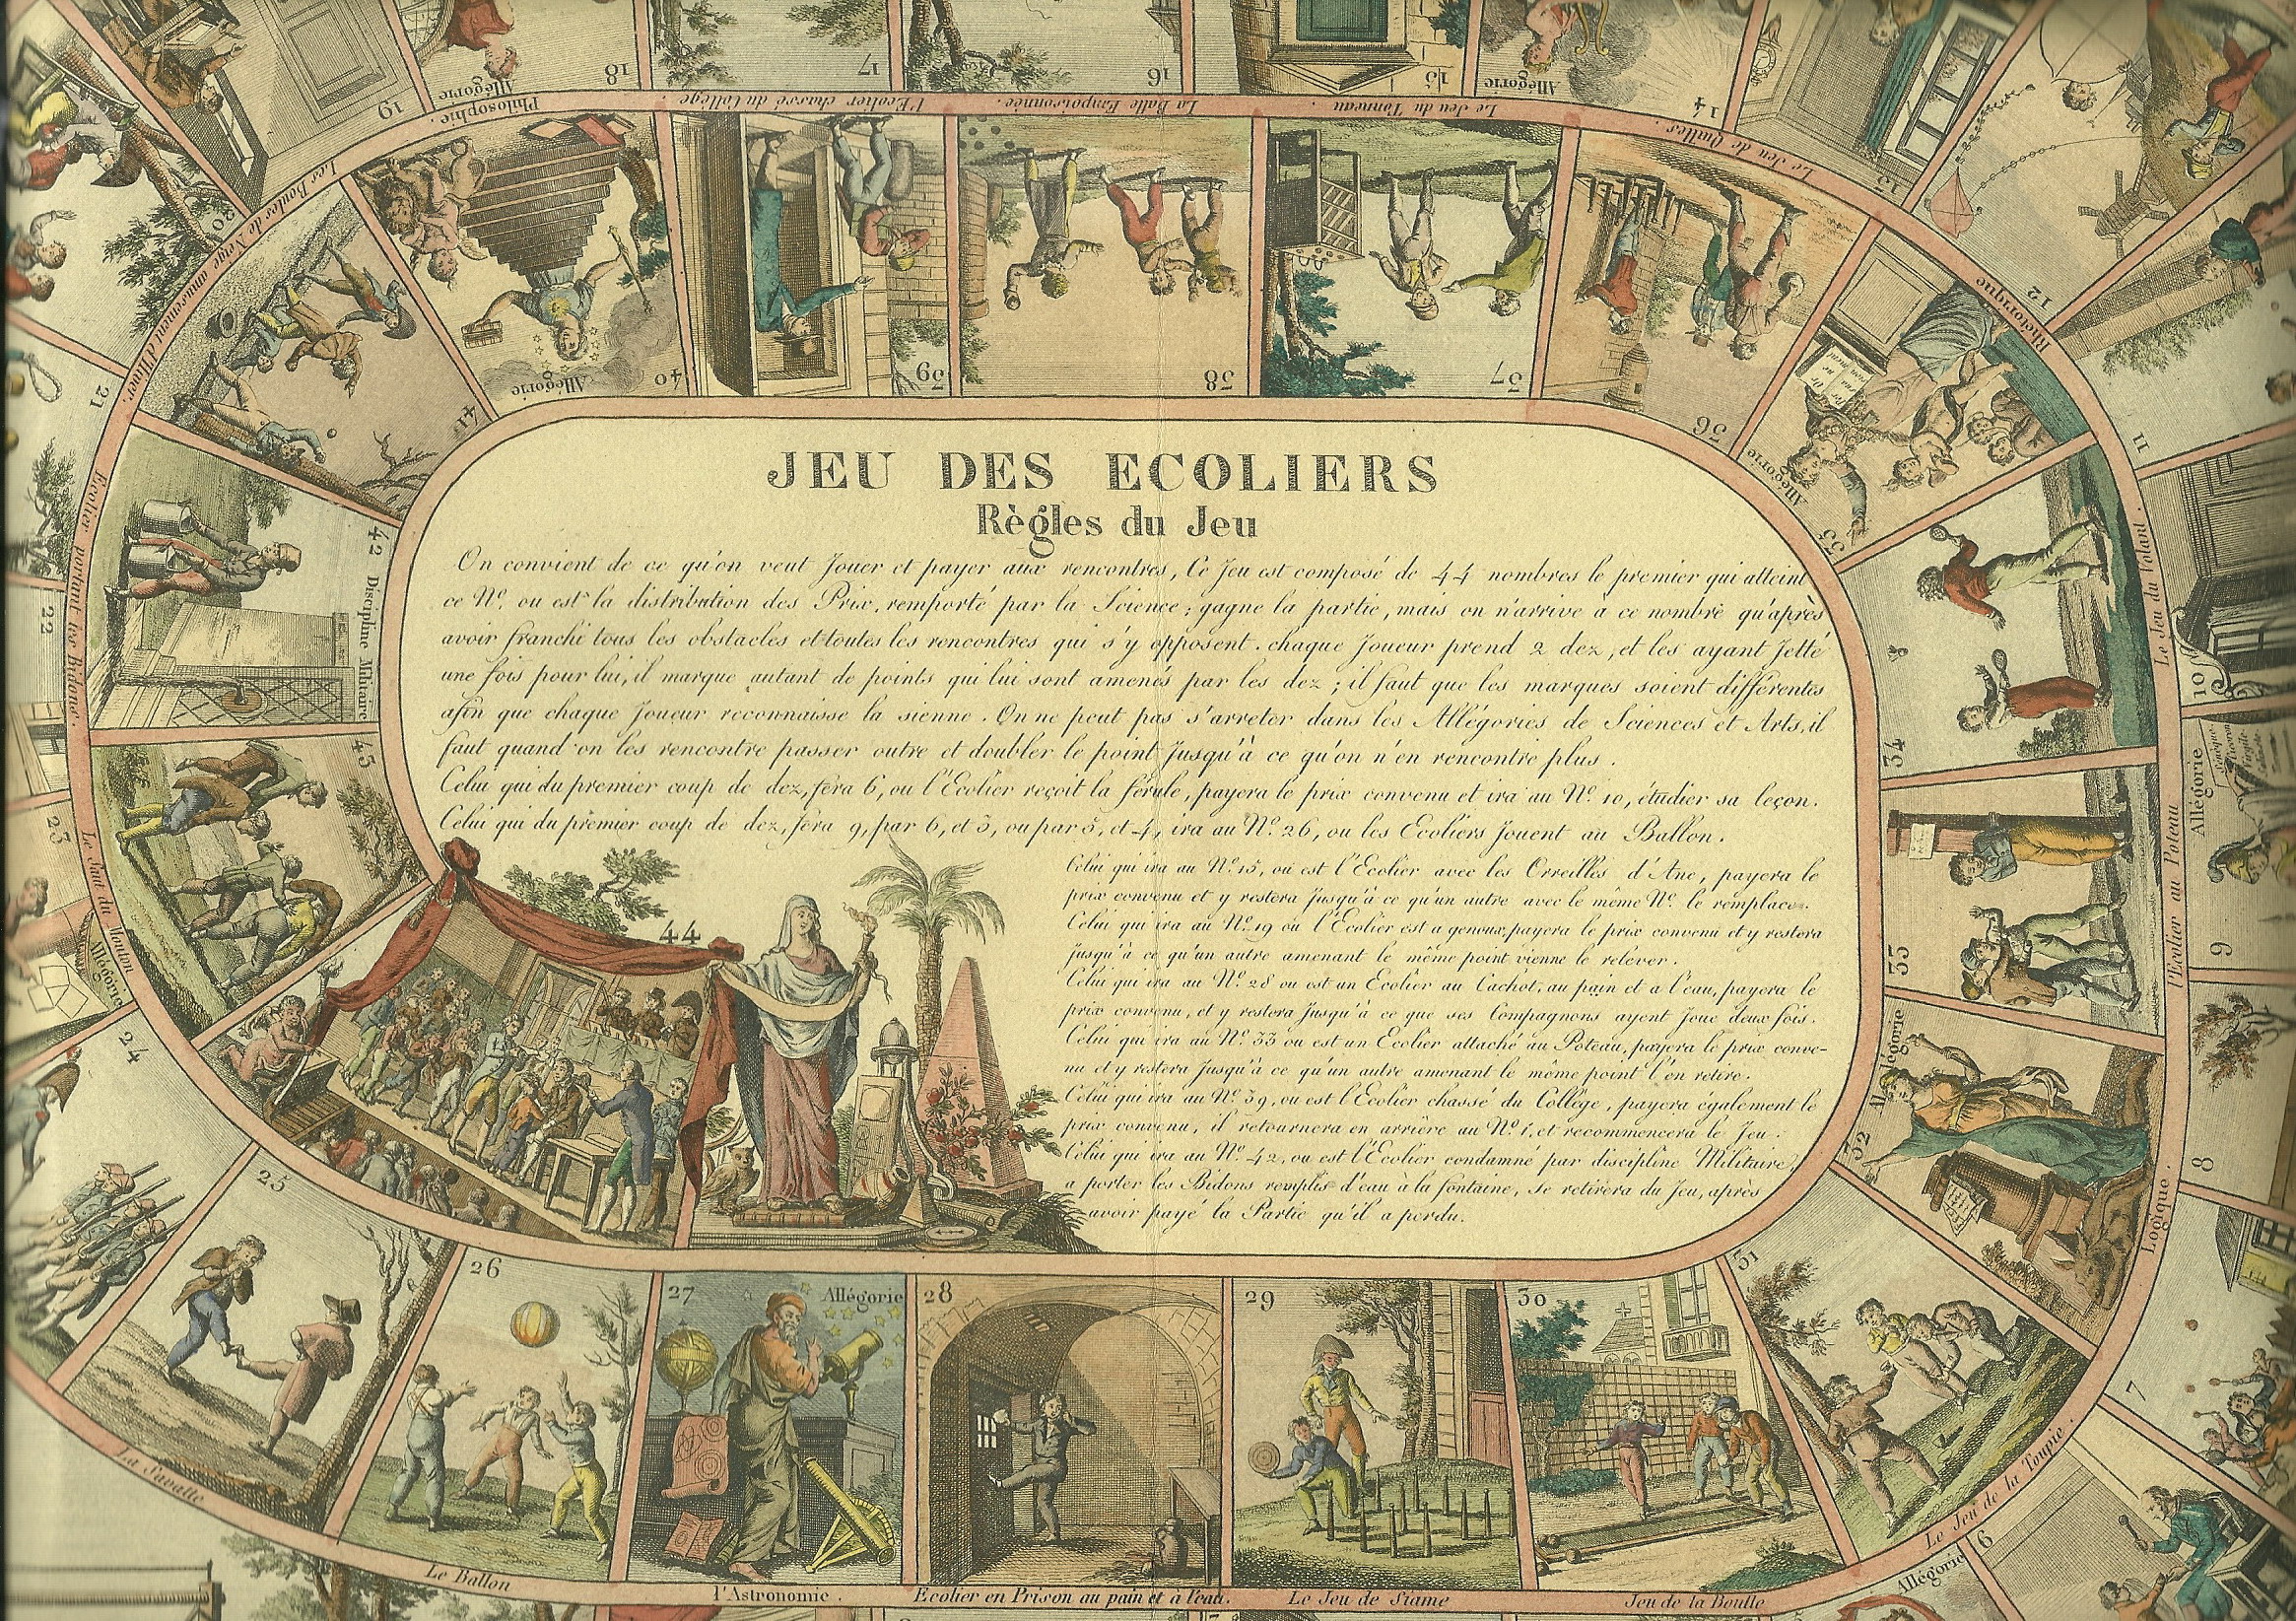 JEU DES ECOLIERS
Règles du Jeu
On convient de ce qu'on veut Jouer et payer aux rencontres, Ce Jeu est composé de 44 nombres le premier qui atteint
ce N.º ou est la distribution des Prix, remporté par la Science; gagne la partie, mais on n'arrive à ce nombre qu'après
avoir franchi tous les obstacles et toutes les rencontres qui s'y opposent. chaque Joueur prend 2 dez, et les ayant Jetté
une fois pour lui, il marque autant de points qui lui sont amenés par les dez; il faut que les marques soient différentes
afin que chaque Joueur reconnaisse la sienne. On ne peut pas s'arreter dans les Allégories de Sciences et Arts, il
faut quand on les rencontre passer outre et doubler le point Jusqu'à ce qu'on n'en rencontre plus.
Celui qui du premier coup de dez, fera 6, ou l'Ecolier reçoit la férule, payera le prix convenu et ira au N.º 10, étudier sa leçon.
Celui qui du premier coup de dez, fera 9, par 6, et 3, ou par 5, et 4, ira au N.º 26, ou les Ecoliers Jouent au Ballon.
Celui qui ira au N.º 15, ou est l'Ecolier avec les Orreilles d'Ane, payera le
prix convenu et y restera Jusqu'à ce qu'un autre avec le même N.º le remplace.
Celui qui ira au N.º 19 ou l'Ecolier est a genoux, payera le prix convenu et y restera
Jusqu'à ce qu'un autre amenant le même point vienne le relever.
Celui qui ira au N.º 28 ou est un Ecolier au Cachot, au pain et a l'eau, payera le
prix convenu, et y restera Jusqu'à ce que ses Compagnons ayent Joué deux fois.
Celui qui ira au N.º 33 ou est un Ecolier attaché au Poteau, payera le prix conve-
nu et y restera Jusqu'à ce qu'un autre amenant le même point l'en retire.
Celui qui ira au N.º 39, ou est l'Ecolier chassé du Collège, payera également le
prix convenu, il retournera en arrière au N.º 1, et recommencera le Jeu.
Celui qui ira au N.º 42, ou est l'Ecolier condamné par discipline Militaire,
a porter les Bidons remplis d'eau à la fontaine, se retirera du Jeu, après
avoir payé la Partie qu'il a perdu.
44
6
Allégorie
7
8
9
Allégorie
10
11
12
13
14
Allégorie
15
16
17
18
Allégorie
19
20
21
22
23
Allégorie
24
25
La Savatte
26
Le Ballon
27
Allégorie
l'Astronomie.
28
Ecolier en Prison au pain et à l'eau.
29
Le Jeu de Siame
30
Jeu de la Boulle
31
Le Jeu de la Toupie.
32
Allégorie
Logique.
33
l'Ecolier au Poteau
34
Le Jeu du Volant.
35
Allégorie
Rhétorique
36
Le Jeu de Quilles.
37
Le Jeu du Tonneau.
38
La Balle Empoisonnée.
39
l'Ecolier chassé du Collège
40
Allégorie
Philosophie.
41
Les Boules de Neige amusement d'Hiver.
42
Discipline Militaire
Ecolier portant les Bidons.
43
Le Saut du Mouton